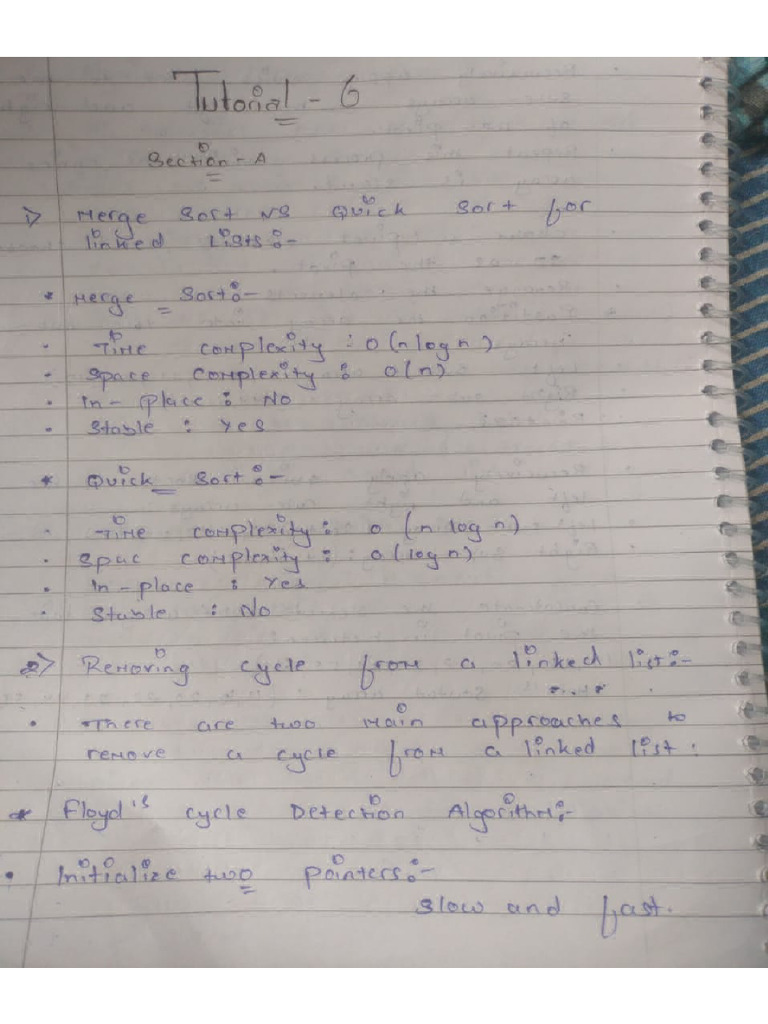 Tutorial - 6
Section - A
1) Merge Sort vs Quick Sort for
linked Lists:-
* Merge Sort:-
· Time complexity : O(n log n)
· Space complexity : O(n)
· In-place : No
· Stable : Yes
* Quick Sort:-
· Time complexity : O (n log n)
· Spac complexity : O(log n)
· In-place : Yes
· Stable : No
2) Removing cycle from a linked list:-
· There are two main approaches to
remove a cycle from a linked list:
* Floyd's cycle Detection Algorithm:-
· Initialize two pointers:-
slow and fast.